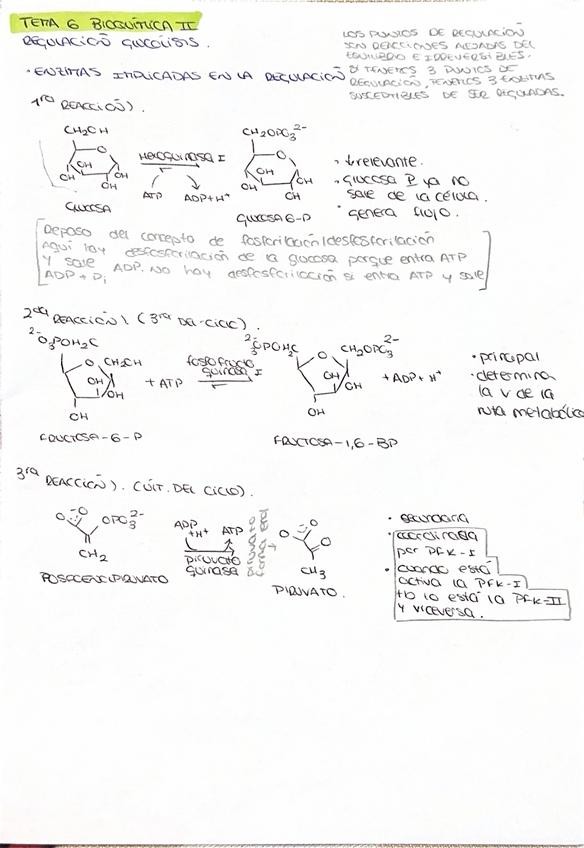 TEMA 6 BIOQUÍMICA II
REGULACIÓN GLUCÓLISIS.
LOS PUNTOS DE REGULACIÓN
SON REACCIONES ALEJADAS DEL
EQUILIBRIO E IRREVERSIBLES.
SI TENEMOS 3 PUNTOS DE
REGULACIÓN, TENEMOS 3 ENZIMAS
SUSCEPTIBLES DE SER REGULADAS.
· ENZIMAS IMPLICADAS EN LA REGULACIÓN
1ra REACCIÓN).
CH2OH
O
OH
OH
OH
OH
GLUCOSA
Hexoquinasa I
ATP
ADP+H+
CH2OPO3 2-
O
OH
OH
OH
OH
GLUCOSA 6-P
· ↓relevante.
· glucosa P ya no
sale de la célula.
· genera flujo.
Repaso del concepto de fosforilación/desfosforilación
Aquí hay desfosforilación de la glucosa porque entra ATP
y sale ADP. No hay desfosforilación si entra ATP y sale
ADP + Pi
2da REACCIÓN (3ra DEL CICLO).
2-O3POH2C
O
CH2OH
OH
OH
OH
FRUCTOSA-6-P
+ ATP
fosfofructo
quinasa I
2-O3POH2C
O
CH2OPO3 2-
OH
OH
OH
FRUCTOSA-1,6-BP
+ADP+ H+
· principal
· determina
la v de la
ruta metabólica
3ra REACCIÓN). (ÚLT. DEL CICLO).
O
O
OPO3 2-
CH2
FOSFOENOLPIRUVATO
ADP
+H+
ATP
piruvato
quinasa
piruvato
forma enol
O
O
O
CH3
PIRUVATO.
· secundaria
· coordinada
por PFK-I
· cuando está
activa la PFK-I
tb lo está la PFK-II
y viceversa.